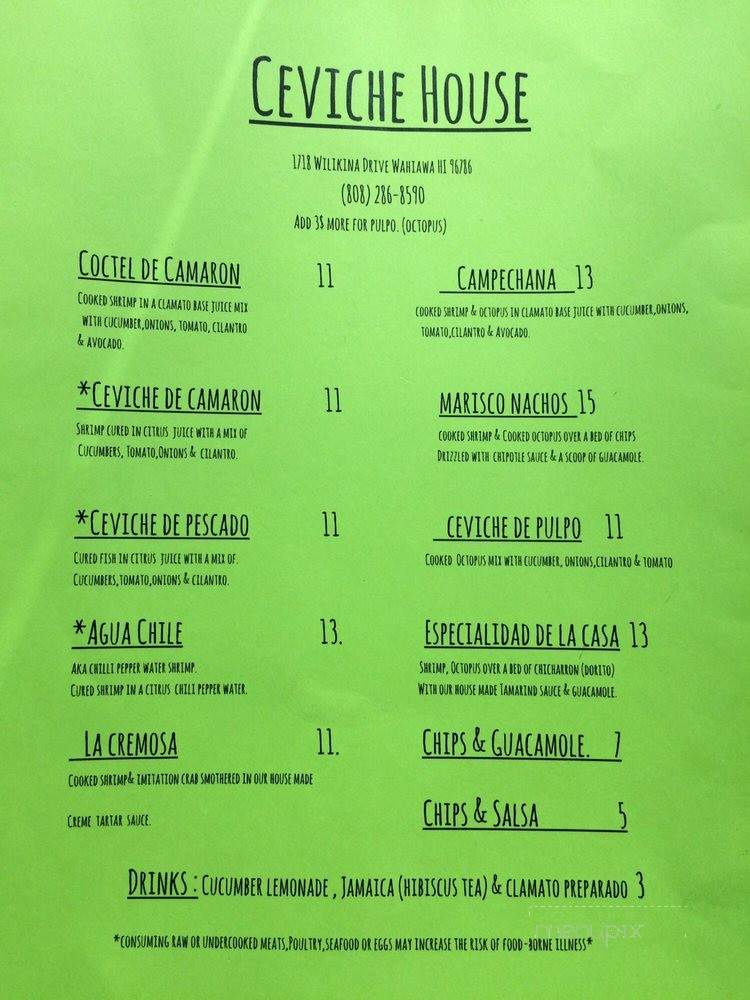 CEVICHE HOUSE
1718 WILIKINA DRIVE WAHIAWA HI 96786
(808) 286-8590
ADD 3$ MORE FOR PULPO. (OCTOPUS)
COCTEL DE CAMARON 11
COOKED SHRIMP IN A CLAMATO BASE JUICE MIX
WITH CUCUMBER,ONIONS, TOMATO, CILANTRO
& AVOCADO.
*CEVICHE DE CAMARON 11
SHRIMP CURED IN CITRUS JUICE WITH A MIX OF
CUCUMBERS, TOMATO,ONIONS & CILANTRO.
*CEVICHE DE PESCADO 11
CURED FISH IN CITRUS JUICE WITH A MIX OF.
CUCUMBERS,TOMATO,ONIONS & CILANTRO.
*AGUA CHILE 13.
AKA CHILLI PEPPER WATER SHRIMP.
CURED SHRIMP IN A CITRUS CHILI PEPPER WATER.
LA CREMOSA 11.
COOKED SHRIMP& IMITATION CRAB SMOTHERED IN OUR HOUSE MADE
CREME TARTAR SAUCE.
CAMPECHANA 13
COOKED SHRIMP & OCTOPUS IN CLAMATO BASE JUICE WITH CUCUMBER,ONIONS,
TOMATO,CILANTRO & AVOCADO.
MARISCO NACHOS 15
COOKED SHRIMP & COOKED OCTOPUS OVER A BED OF CHIPS
DRIZZLED WITH CHIPOTLE SAUCE & A SCOOP OF GUACAMOLE.
CEVICHE DE PULPO 11
COOKED OCTOPUS MIX WITH CUCUMBER, ONIONS,CILANTRO & TOMATO
ESPECIALIDAD DE LA CASA 13
SHRIMP, OCTOPUS OVER A BED OF CHICHARRON (DORITO)
WITH OUR HOUSE MADE TAMARIND SAUCE & GUACAMOLE.
CHIPS & GUACAMOLE. 7
CHIPS & SALSA 5
DRINKS : CUCUMBER LEMONADE , JAMAICA (HIBISCUS TEA) & CLAMATO PREPARADO 3
menupix
*CONSUMING RAW OR UNDERCOOKED MEATS,POULTRY,SEAFOOD OR EGGS MAY INCREASE THE RISK OF FOOD-BORNE ILLNESS*